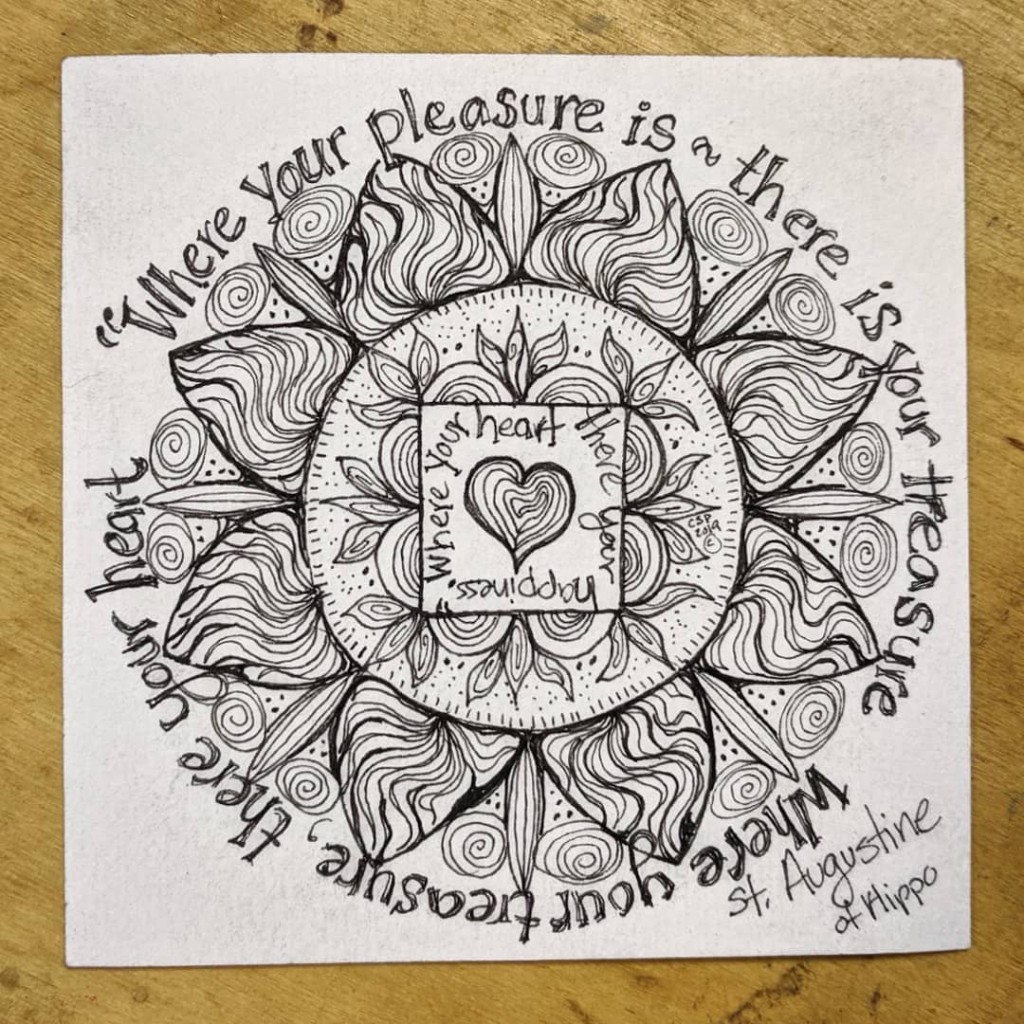 "Where your pleasure is ~ there is your treasure
Where your treasure, there your heart
Where your heart there your happiness."
St. Augustine
of Hippo
CSP
2019
©